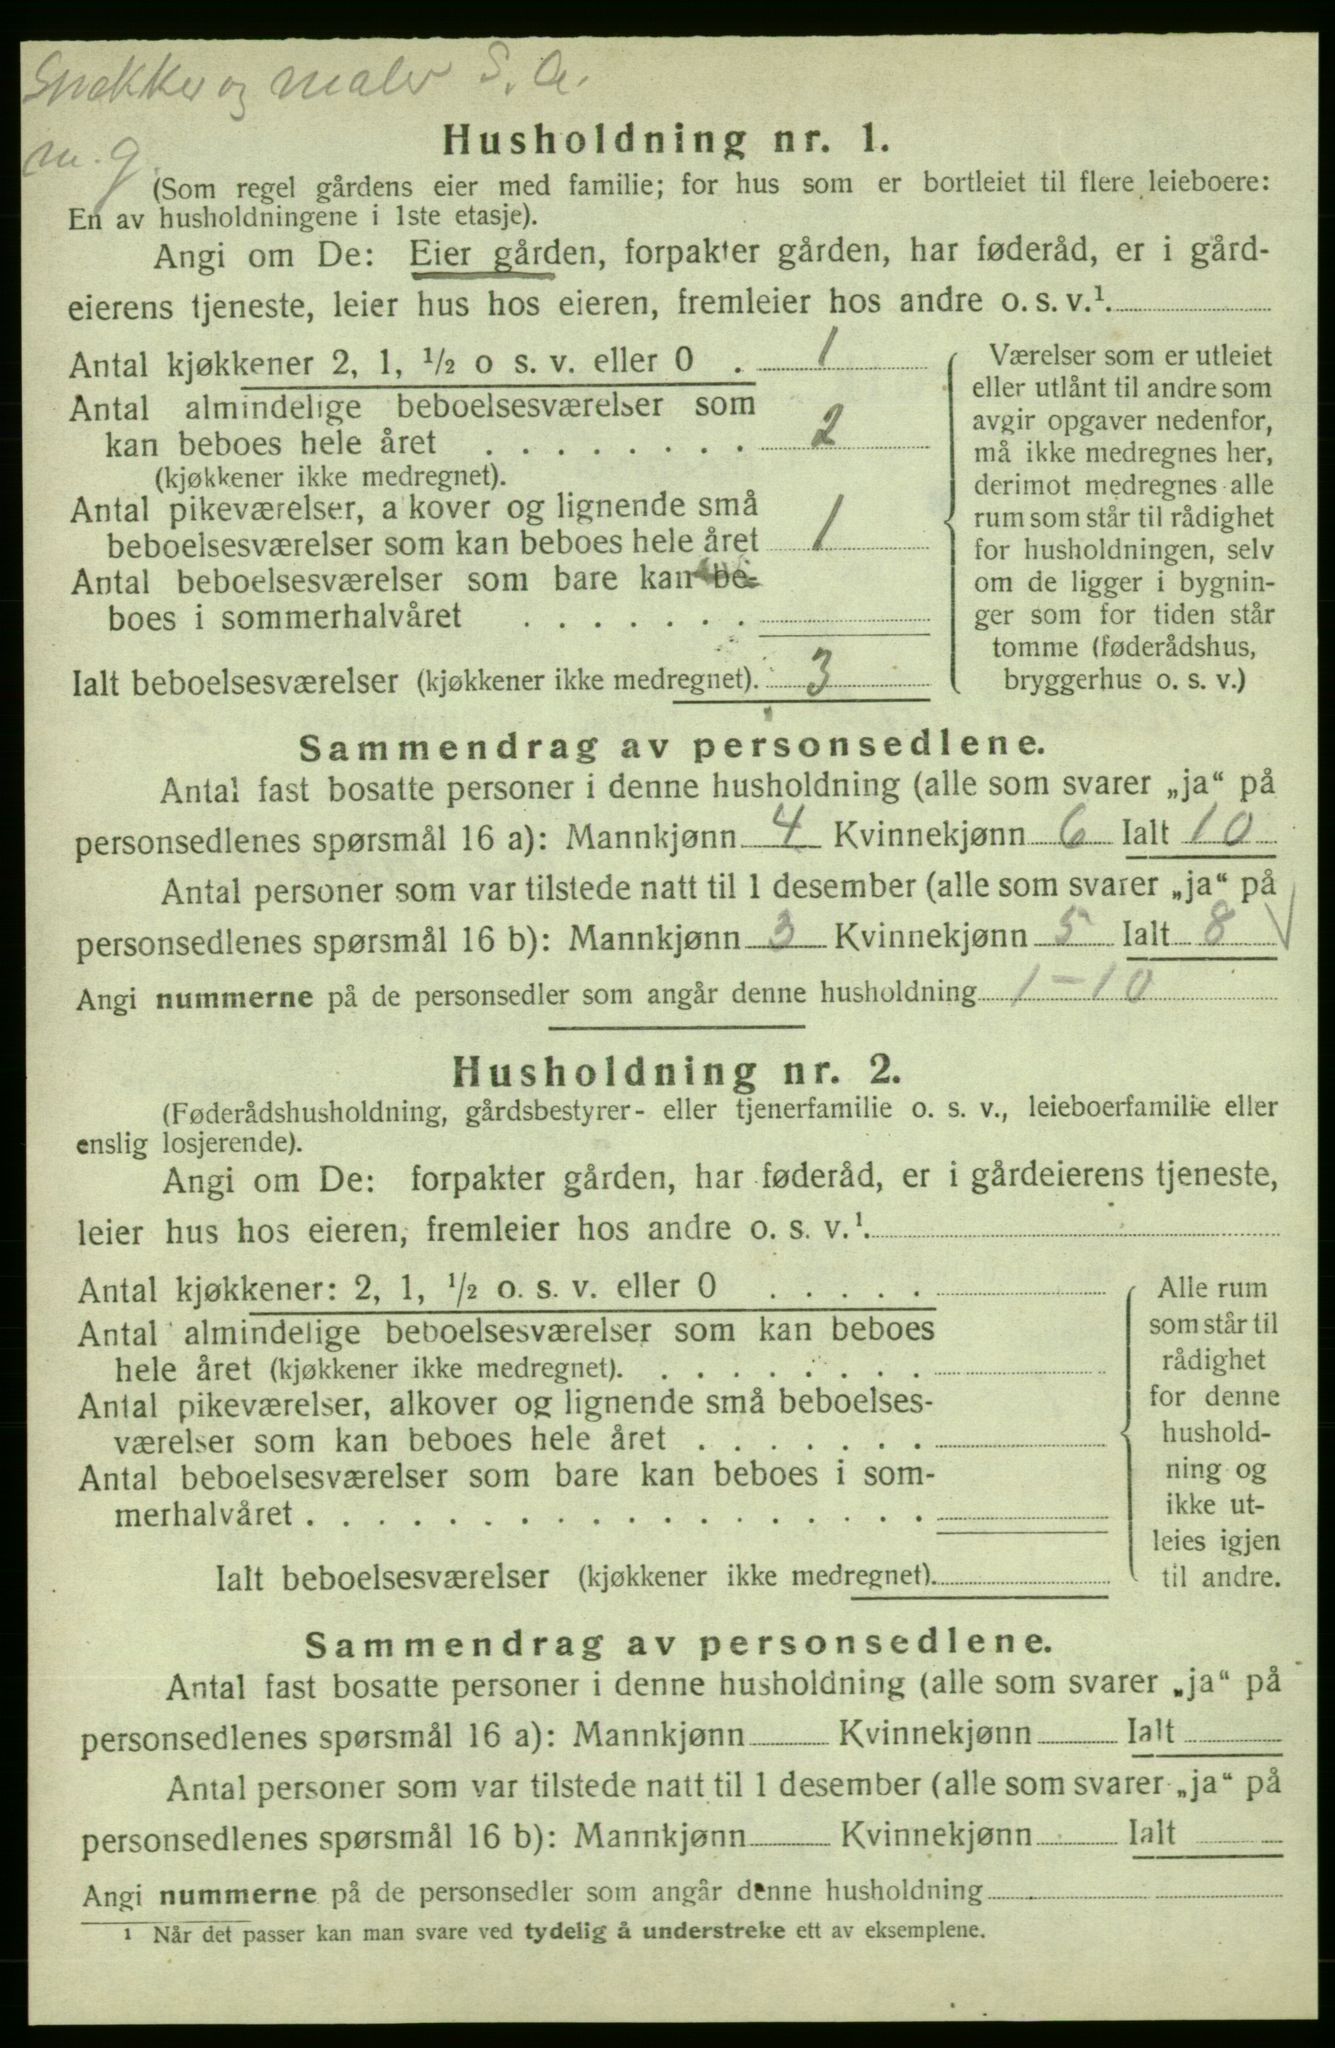 Snekker og maler S. A.
m. g.
Husholdning nr. 1.
(Som regel gårdens eier med familie; for hus som er bortleiet til flere leieboere:
En av husholdningene i 1ste etasje).
Angi om De: Eier gården, forpakter gården, har føderåd, er i gård-
eierens tjeneste, leier hus hos eieren, fremleier hos andre o. s. v.¹.
Antal kjøkkener 2, 1, ½ o s. v. eller 0 . 1
Antal almindelige beboelsesværelser som
kan beboes hele året . . . . . . . . 2
(kjøkkener ikke medregnet).
Antal pikeværelser, a kover og lignende små
beboelsesværelser som kan beboes hele året 1
Antal beboelsesværelser som bare kan be-
boes i sommerhalvåret . . . . . . .
Ialt beboelsesværelser (kjøkkener ikke medregnet). 3
Værelser som er utleiet
eller utlånt til andre som
avgir opgaver nedenfor,
må ikke medregnes her,
derimot medregnes alle
rum som står til rådighet
for husholdningen, selv
om de ligger i bygnin-
ger som for tiden står
tomme (føderådshus,
bryggerhus o. s. v.)
Sammendrag av personsedlene.
Antal fast bosatte personer i denne husholdning (alle som svarer „ja“ på
personsedlenes spørsmål 16 a): Mannkjønn 4 Kvinnekjønn 6 Ialt 10
Antal personer som var tilstede natt til 1 desember (alle som svarer „ja“ på
personsedlenes spørsmål 16 b): Mannkjønn 3 Kvinnekjønn 5 Ialt 8 √
Angi nummerne på de personsedler som angår denne husholdning 1-10
Husholdning nr. 2.
(Føderådshusholdning, gårdsbestyrer- eller tjenerfamilie o. s. v., leieboerfamilie eller
enslig losjerende).
Angi om De: forpakter gården, har føderåd, er i gårdeierens tjeneste,
leier hus hos eieren, fremleier hos andre o. s. v.¹.
Antal kjøkkener: 2, 1, ½ o. s. v. eller 0 . . . . .
Antal almindelige beboelsesværelser som kan beboes
hele året (kjøkkener ikke medregnet). . . . . . . . .
Antal pikeværelser, alkover og lignende små beboelses-
værelser som kan beboes hele året . . . . . . .
Antal beboelsesværelser som bare kan beboes i som-
merhalvåret . . . . . . . . . . . . . . . . . .
Ialt beboelsesværelser (kjøkkener ikke medregnet).
Alle rum
som står til
rådighet
for denne
hushold-
ning og
ikke ut-
leies igjen
til andre.
Sammendrag av personsedlene.
Antal fast bosatte personer i denne husholdning (alle som svarer „ja“ på
personsedlenes spørsmål 16 a): Mannkjønn Kvinnekjønn Ialt
Antal personer som var tilstede natt til 1 desember (alle som svarer „ja“ på
personsedlenes spørsmål 16 b): Mannkjønn Kvinnekjønn Ialt
Angi nummerne på de personsedler som angår denne husholdning
¹ Når det passer kan man svare ved tydelig å understreke ett av eksemplene.